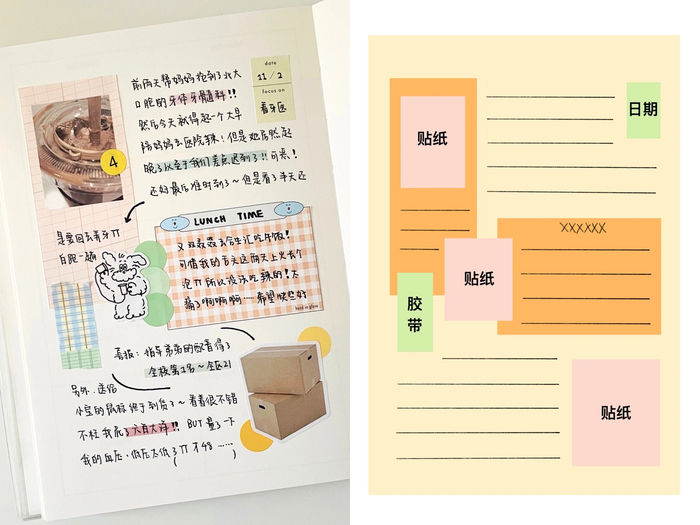 前两天帮妈妈抢到了北大
口腔的牙体牙髓科!!
然后今天就得起一个大早
陪妈妈去医院辣!但是她居然起
晚了以至于我们差点迟到了!!可恶!
还好最后准时到了~但是看了半天还
是要回去弄牙TT
白跑一趟
date
11 / 2
focus on
看牙医
4
LUNCH TIME
又双叒叕去合生汇吃午饭!
可惜我的舌头这两天上火长个
泡TT所以没法吃辣的!太
痛了啊啊啊……希望快些好
喜报:指导弟弟的
全校第1名~全区21
另外,送给
小宝的鼠标终于到货了~看着很不错
不枉我花了六百大洋!! BUT 量了一下
我的血压,低压太低了TT 不好……
( )
贴纸
日期
XXXXXX
贴纸
胶
带
贴纸